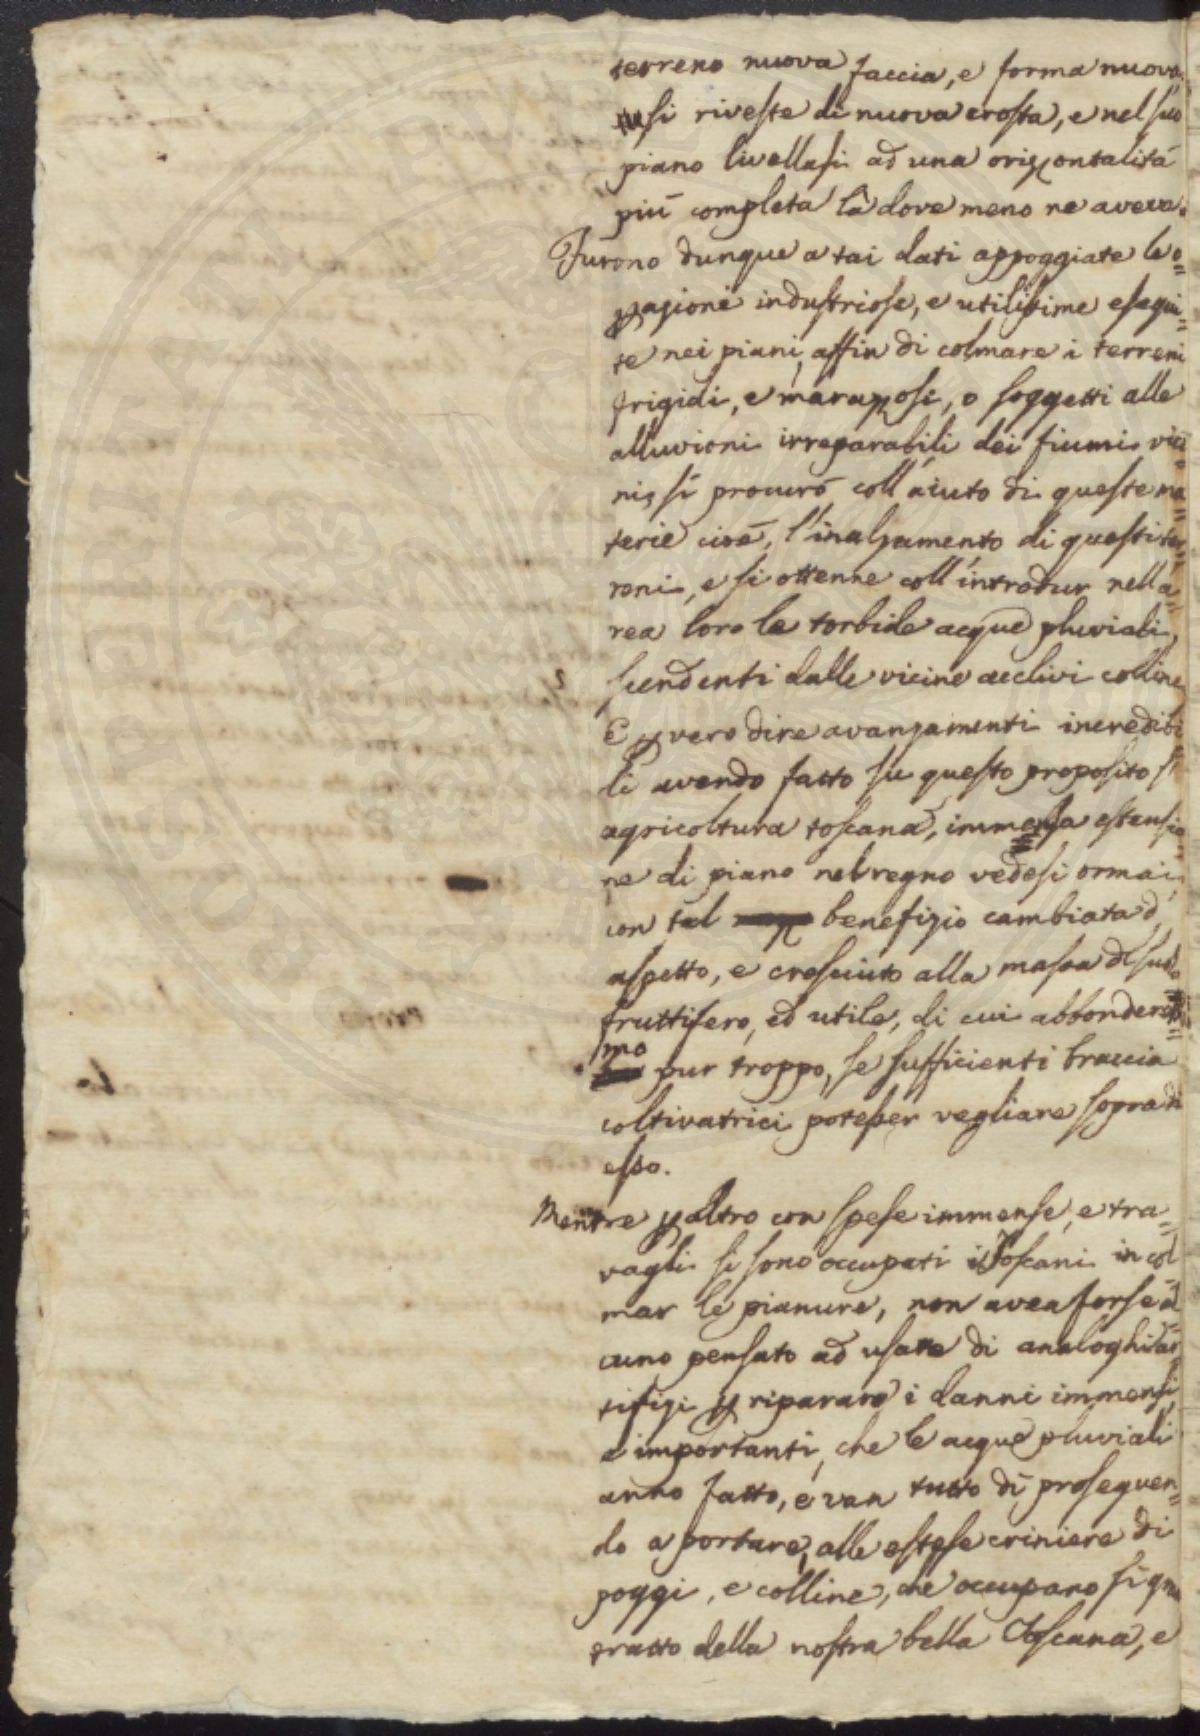 terreno nuova faccia, e forma nuova,
si riveste di nuova crosta, e nel suo
piano livellasi ad una orizontalità
più completa là dove meno ne aveva.
Furono dunque a tai dati appoggiate le o=
perazioni industriose, e utilissime esegui=
te nei piani, affin di colmare i terreni
frigidi, e marazzosi, o soggetti alle
alluvioni irreparabili dei fiumi vici=
ni, si procurò coll'aiuto di queste ma=
terie cioè, l'inalzamento di questi ter=
reni, e si ottenne coll'introdur nell'a=
rea loro le torbide acque pluviali,
scendenti dalle vicine acclivi colline
E per vero dire avanzamenti incredibi=
li avendo fatto su questo proposito l'
agricoltura toscana, immensa estensio=
ne di piano nel regno vedesi ormai,
con tal benefizio cambiata d'
aspetto, e cresciuto alla massa di suolo
fruttifero, ed utile, di cui abbondere=
mo pur troppo, se sufficienti braccia
coltivatrici potesser vegliare sopra di
esso.
Mentre per altro con spese immense, e tra=
vagli si sono occupati i Toscani in col=
mar le pianure, non avea forse al=
cuno pensato ad usare di analoghi ar=
tifizi per riparare i danni immensi,
e importanti, che le acque pluviali
anno fatto, e van tutto dì proseguen=
do a portare, alle estese criniere di
poggi, e colline, che occupano sì gran
tratto della nostra bella Toscana, e